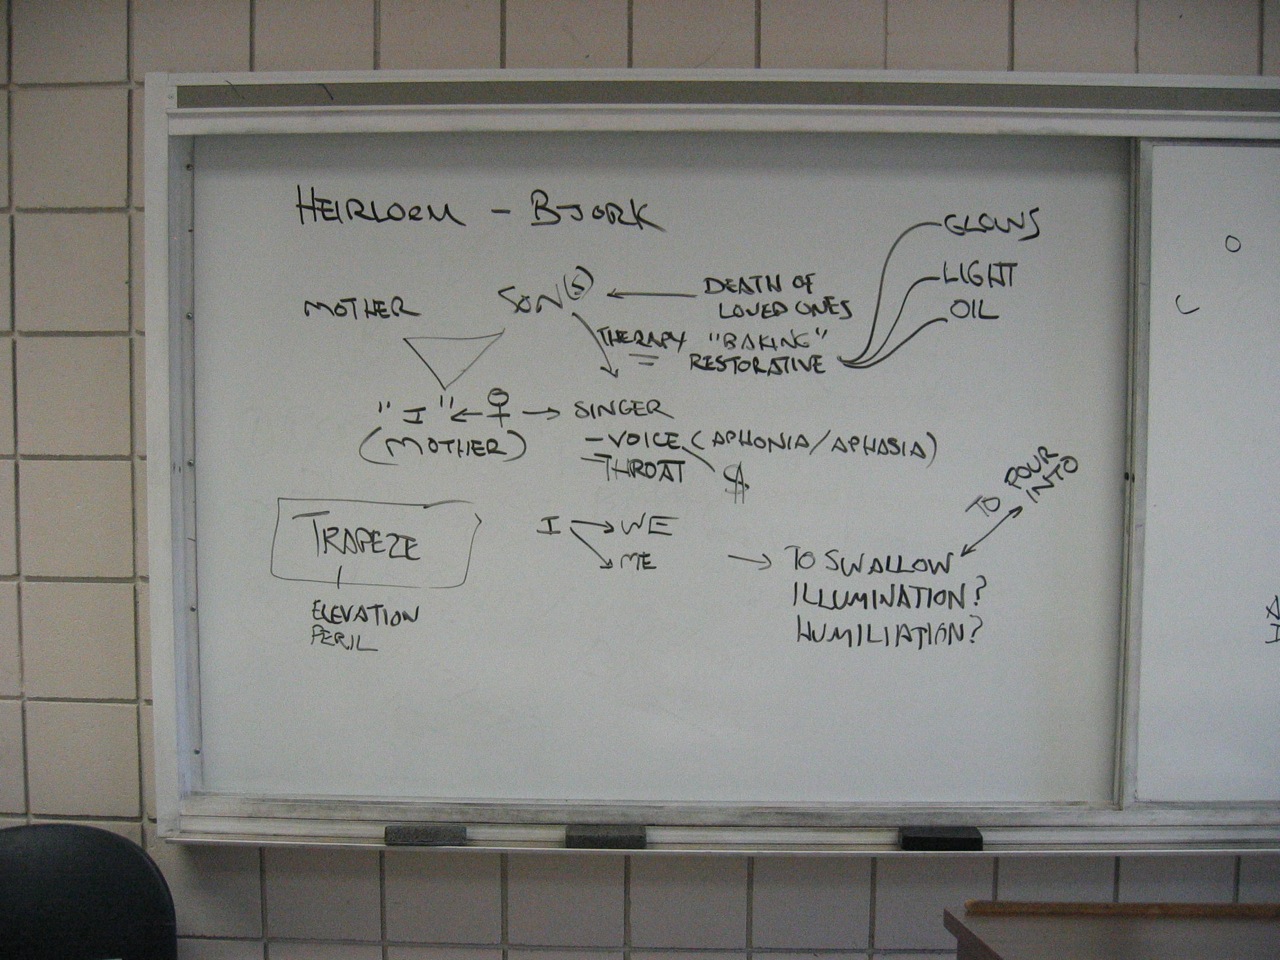 HEIRLOEM - BJORK
GLOWS
LIGHT
OIL
MOTHER
SON(S)
DEATH OF
LOVED ONES
THERAPY "BAKING"
RESTORATIVE
"I"
(MOTHER)
SINGER
- VOICE (APHONIA/APHASIA)
- THROAT
$
TO POUR
INTO
TRAPEZE
ELEVATION
PERIL
I WE
ME
TO SWALLOW
ILLUMINATION?
HUMILIATION?